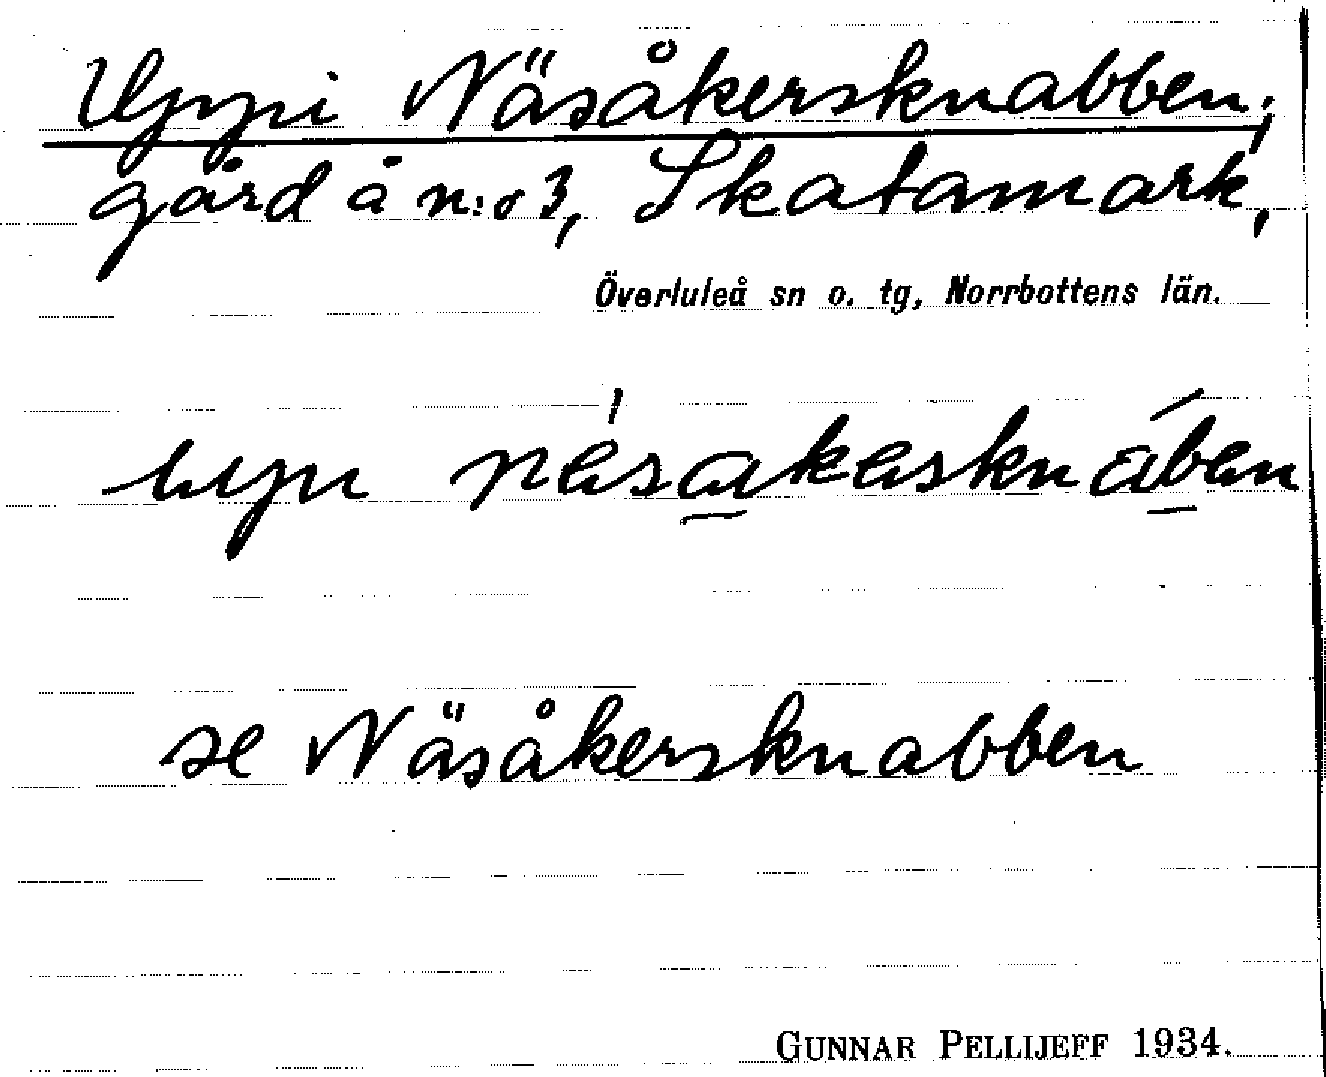 Uppi Näsåkersknabben,
gård å n:o 3, Skatamark,
Överluleå sn o. tg, Norrbottens län.
se Näsåkersknabben
GUNNAR PELLIJEFF 1934.